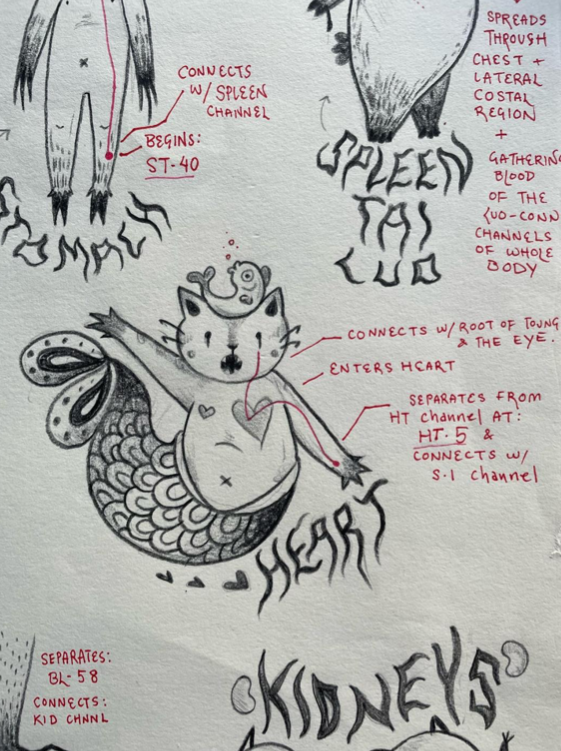 CONNECTS
W/ SPLEEN
CHANNEL
BEGINS:
ST-40
STOMACH
SPREADS
THROUGH
CHEST +
LATERAL
COSTAL
REGION
+
GATHERING
BLOOD
OF THE
LUO-CONN
CHANNELS
OF WHOLE
BODY
SPLEEN
TAI
LUO
CONNECTS W/ ROOT OF TOUNG
& THE EYE.
ENTERS HEART
SEPARATES FROM
HT channel AT:
HT-5 &
CONNECTS W/
S.I channel
HEART
SEPARATES:
BL-58
CONNECTS:
KID CHNNL
KIDNEYS